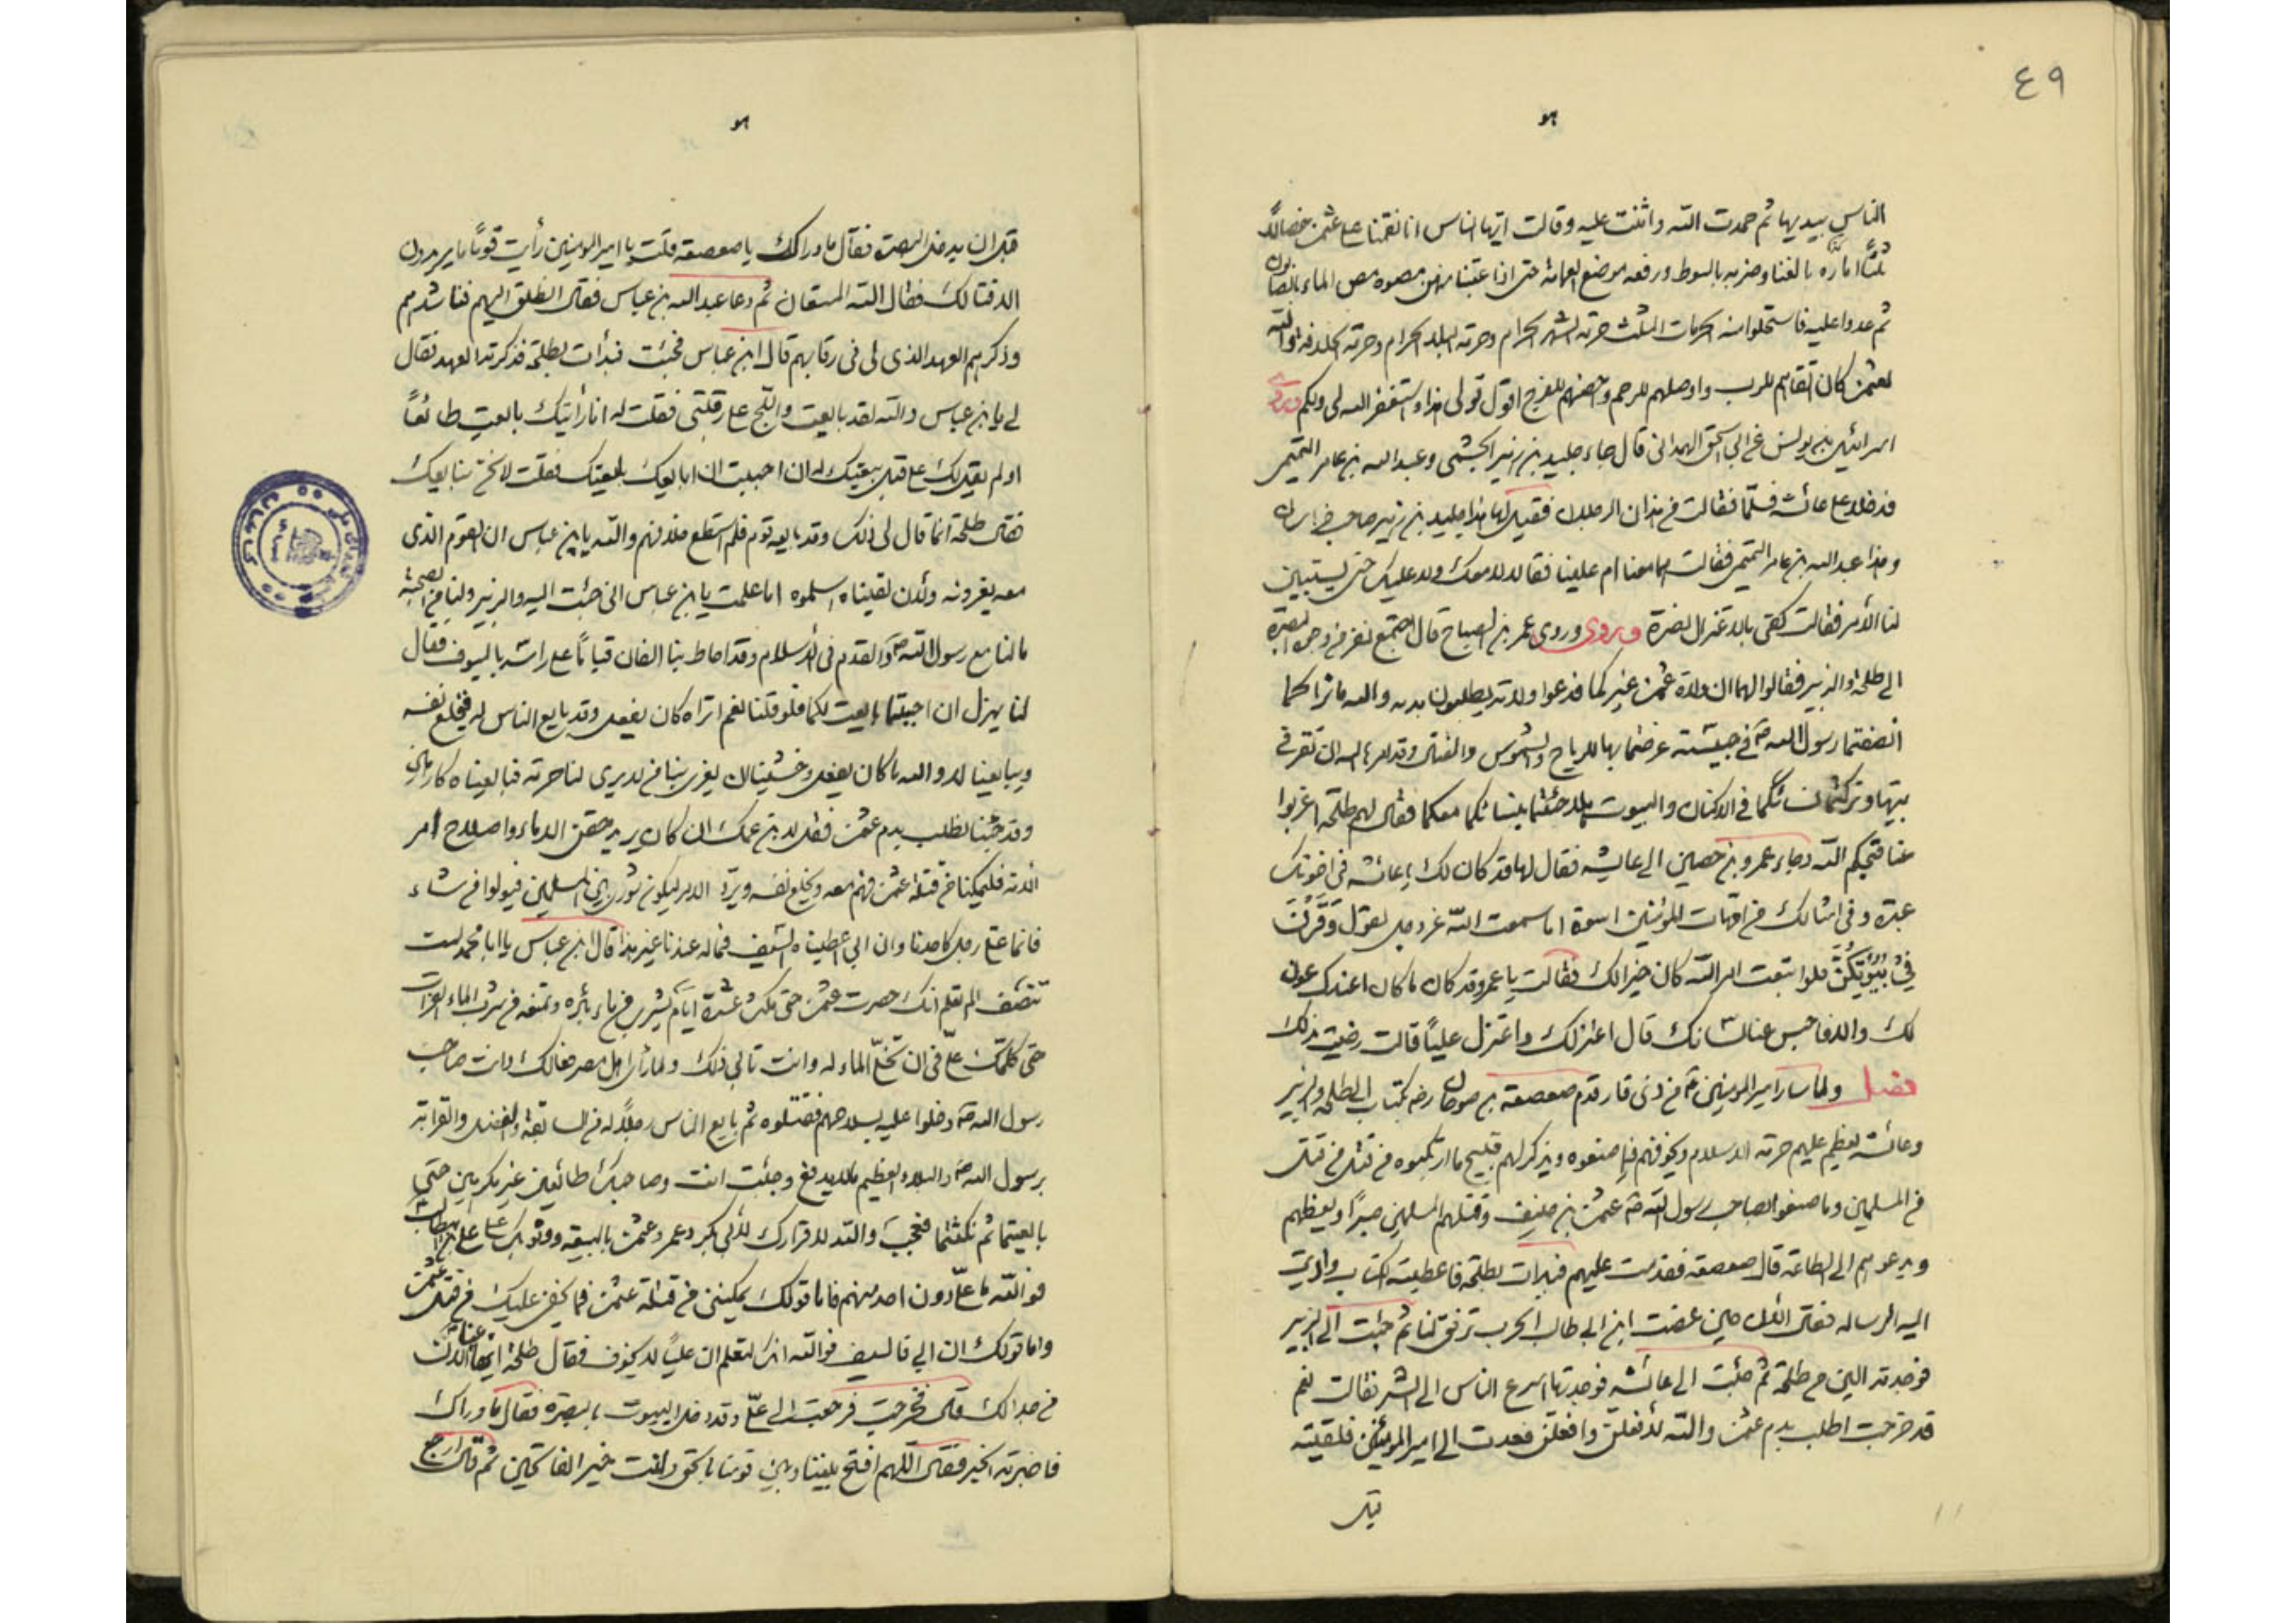 ٤٩
هو
الناس بيديها ثم حمدت الله واثنت عليه وقالت ايها الناس انا نقمنا على عثمن خصالاً
ثلثا امارة بالغنا وضربه بالسوط ورفعه موضع الغمامة حتى اذا عتبنا منهن مصوه موص الماء بالصابون
ثم عدوا عليه فاستحلوا منه الحرمات الثلث حرمة الشهر الحرام وحرمة البلد الحرام وحرمة الخلافة والله
لعثمن كان اتقاهم للرب واوصلهم للرحم واحصنهم للفرج اقول قولى هذا واستغفر الله لى ولكم وروى
اسرائيل بن يونس عن ابى اسحق الهمدانى قال جاء جليد بن زهير الجشمى وعبد الله بن عامر التميمى
فدخلا على عائشة فسلما فقالت من هذان الرجلان فقيل لها هذا جليد بن زهير صاحب خراسان
وهذا عبد الله بن عامر التميمى فقالت اهما معنا ام علينا فقالا لا معك ولا عليك حتى يستبين
لنا الأمر فقالت كفى بالاعتزال نصرة وروى وروى عمر بن الصباح قال اجتمع نفر من وجوه البصرة
الى طلحة والزبير فقالوا لهما ان ولاة عثمن غيركما فدعوا ولاته يطلبون بدمه والله ما نراكما
انصفتما رسول الله ص فى حبيسته عرضتما بها للرياح والشموس والقتال وقد امرها الله ان تقر فى
بيتها وتركتما نسائكما فى الاكنان والبيوت هلا جئتما بنسائكما معكما فقال لهم طلحة اغربوا
عنا قبحكم الله وجاء عمرو بن حصين الى عائشة فقال لها قد كان لك يا عائشة فى اخوتك
عبرة وفى امثالك من امهات المؤمنين اسوة اما سمعت الله عز وجل يقول وَقَرْنَ
فِي بُيُوتِكُنَّ فلو اتبعت امر الله كان خيرا لك فقالت يا عمرو قد كان ما كان اعندك عون
لك والا فاحبس عنا لسانك قال اعتزلك واعتزل علياً قالت رضيت بذلك
فصل ولما سار امير المؤمنين ع من ذى قار قدم صعصعة بن صوحان رضه بكتاب الى طلحة والزبير
وعائشة يعظم عليهم حرمة الاسلام ويخوفهم فيما صنعوه ويذكر لهم قبيح ما ارتكبوه من قتل من قتل
من المسلمين وما صنعوا بصاحب رسول الله ص عثمن بن حنيف وقتلهم المسلمين صبراً ويعظهم
ويدعوهم الى الطاعة قال صعصعة فقدمت عليهم فبدات بطلحة فاعطيته الكتاب واديت
اليه الرسالة فقال الآن حين عضت ابن ابى طالب الحرب ترفق لنا ثم جئت الى الزبير
فوجدته الين من طلحة ثم جئت الى عائشه فوجدتها اسرع الناس الى الشر فقالت نعم
قد خرجت اطلب بدم عثمن والله لأفعلن وافعلن فعدت الى امير المؤمنين فلقيته
قبل
هو
قبل ان يدخل البصرة فقال ما ورائك يا صعصعة قلت يا امير المؤمنين رأيت قوماً ما يريدون
الا قتالك فقال الله المستعان ثم دعا عبد الله بن عباس فقال انطلق اليهم فناشدهم
وذكرهم العهد الذى لى فى رقابهم قال ابن عباس فجئت فبدأت بطلحة فذكرته العهد فقال
لى يا بن عباس والله لقد بايعت واللج على رقبتى فقلت له انا رأيتك بايعت طائعاً
اولم يقل لك على قبل بيعتك له ان احببت ان ابايعك بايعتك فقلت لا نحن نبايعك
فقال طلحة انما قال لى ذلك وقد بايعه قوم فلم استطع خلافهم والله يا بن عباس ان القوم الذى
معه يغرونه ولأن لقيناه اسلموه اما علمت يا بن عباس انى جئت اليه والزبير ولنا من الصحبة
ما لنا مع رسول الله ص والقدم فى الاسلام وقد احاط بنا الناس قياماً على راسه بالسيوف فقال
لنا بهزل ان احببتما بايعت لكما فلو قلنا نعم اتراه كان يفعل وقد بايع الناس له فيخلع نفسه
ويبايعنا لا والله ما كان يفعل وخشينا ان يغرى بنا من لا يرى لنا حرمة فبايعناه كارهين
وقد جئنا نطلب بدم عثمن فقل لابن عمك ان كان يريد حقن الدماء واصلاح امر
الأمة فليمكنا من قتلة عثمن فهم معه ويخلع نفسه ويرد الامر ليكون شورى بين المسلمين فيولوا من شاء
فانما على رجل كاحدنا وان ابى اعطيناه السيف فما له عندنا غير هذا قال ابن عباس يا ابا محمد لست
تنصف الم تعلم انك حصرت عثمن حتى مكث عشرة ايام يشرب من ماء بئره وتمنعه من شرب الماء الفرات
حتى كلمك على فى ان تخلى الماء له وانت تابى ذلك ولما رأى اهل مصر فعالك وانت صاحب
رسول الله ص دخلوا عليه بسلاحهم فقتلوه ثم بايع الناس رجلا له من السابقة والفضل والقرابة
برسول الله ص والبلاء العظيم ما لا يدفع وجئت انت وصاحبك طائعين غير مكرهين حتى
بايعتما ثم نكثتما فعجب والله لاقرارك لأبى بكر وعمر وعثمن بالبيعة ووثوبك على على بن ابى طالب
فوالله ما على دون احد منهم فاما قولك يمكننى من قتلة عثمن فما يخفى عليك من قتل عثمن
واما قولك ان ابى فالسيف فوالله انك لتعلم ان علياً لا يخوف فقال طلحة ايها عنا الآن
من جدالك قال فخرجت فرجعت الى على وقد دخل البيوت بالبصرة فقال ما وراك
فاخبرته الخبر فقال اللهم افتح بيننا وبين قومنا بالحق وانت خير الفاتحين ثم قال ارجع